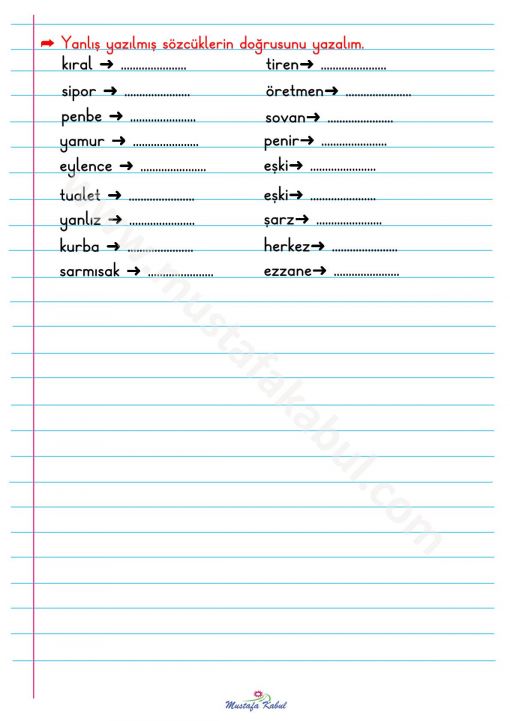 ➡ Yanlış yazılmış sözcüklerin doğrusunu yazalım.
kıral ➔ ...................... tiren➔ ......................
sipor ➔ ...................... öretmen➔ ......................
penbe ➔ ...................... sovan➔ ......................
yamur ➔ ...................... penir➔ ......................
eylence ➔ ...................... eşki➔ ......................
tualet ➔ ...................... eşki➔ ......................
yanlız ➔ ...................... şarz➔ ......................
kurba ➔ ...................... herkez➔ ......................
sarmısak ➔ ...................... ezzane➔ ......................
www.mustafakabul.com
Mustafa Kabul